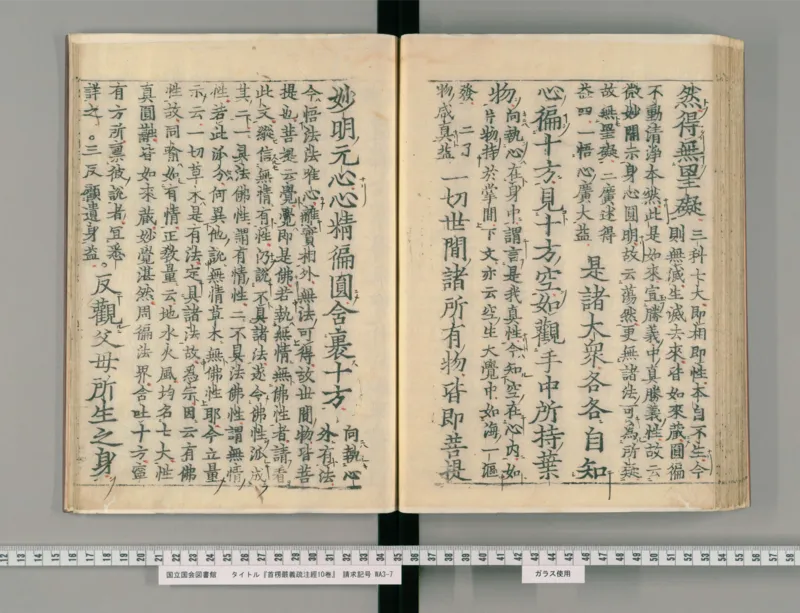 然得無罣礙
三科七大即相即性本自不生今
則無滅生滅去來皆如來藏圓徧
不動清淨本然此是如來宜勝義中真勝義性故云
微妙開示身心圓明故云蕩然更無諸法可為所礙
故無罣礙二廣述得
益四一悟心廣大益
是諸大衆各各自知
心徧十方見十方空如觀手中所持葉
物
向執心在身中謂言是我真性今知空在心內如
片物持於掌間下文亦云空生大覺中如海一漚
發 二了
物咸真益
一切世間諸所有物皆即菩提
妙明元心心精徧圓含裹十方
向執心
外有法
今悟法法唯心離實相外無法可得故世間物皆菩
提也菩提云覺覺即是佛若執無情無佛性者請看
此文縱信無情有性乃說不具諸法遂令佛性派成
其二一具法佛性謂有情性二不具法佛性謂無情
性若此派分何異他說無情草木無佛性耶今立量
示云一切草木是有法定具諸法故為宗因云有佛
性故同喻如有情正教量云地水火風均名七大性
真圓融皆如來藏妙覺湛然周徧法界含吐十方寧
有方所禀彼說者宜悉
詳之。三反顯遺身益。
反觀父母所生之身
国立国会図書館 タイトル『首楞嚴義疏注經10巻』 請求記号 WA3-7
ガラス使用